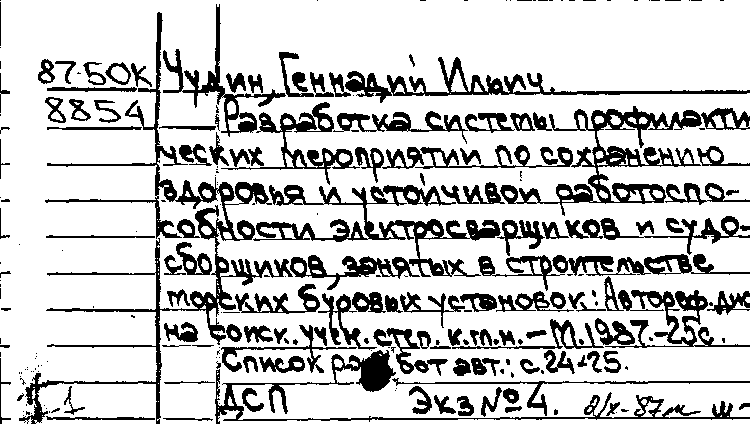 87-50К Чудин, Геннадий Ильич.
8854 Разработка системы профилакти
ческих мероприятий по сохранению
здоровья и устойчивой работоспо-
собности электросварщиков и судо-
сборщиков, занятых в строительстве
морских буровых установок: Автореф. дис
на соиск. учен. степ. к.т.н. – М. 1987. – 25с.
Список работ авт.: с. 24-25.
1 ДСП Экз № 4.